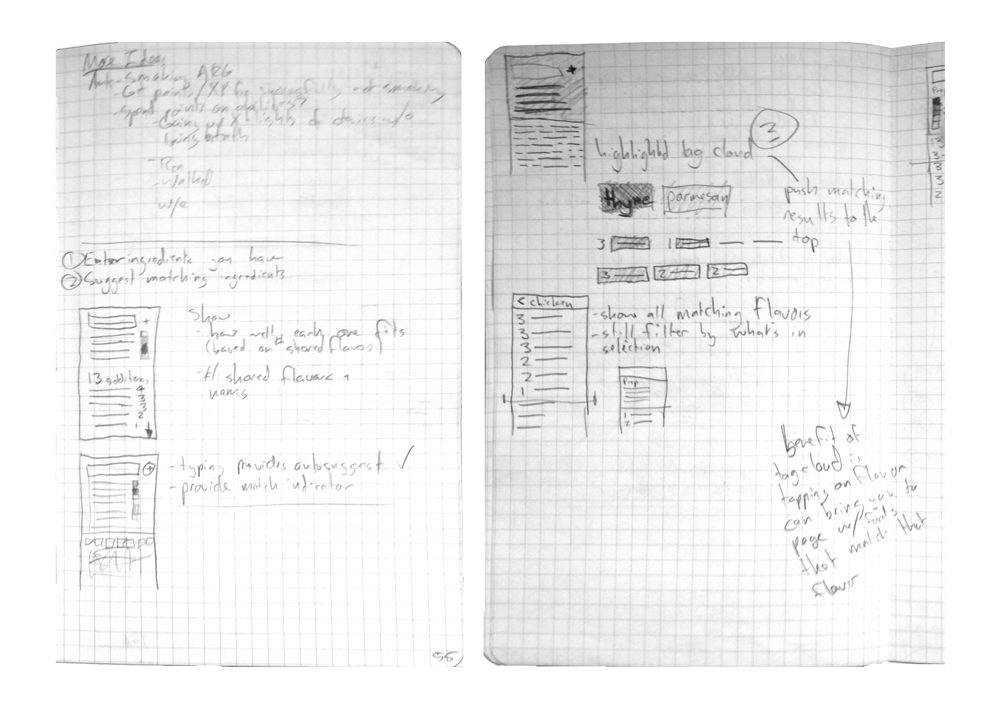 More Ideas
Anti-Smoking ARG
-Get points/XP for successfully not smoking
-spend points on
-Going up X flights of stairs w/o
losing breath
-Ran
-walked
w/e
① Enter ingredients you have
② Suggest matching ingredients
+
13 additions
4
3
3
2
1
Show
-how well each one fits
(based on # shared flavors)
-# shared flavors +
names
+
-typing provides autosuggest ✓
-provide match indicator
56
+
2
highlighted tag cloud
thyme
parmesan
push matching
results to the
top
3
1
3
2
2
< chicken
3
3
3
2
2
1
-show all matching flavors
-still filter by what's in
selection
1
2
benefit of
tag cloud is
tapping on flavor
can bring you to
page w/ foods
that match that
flavor
3
3
3
2